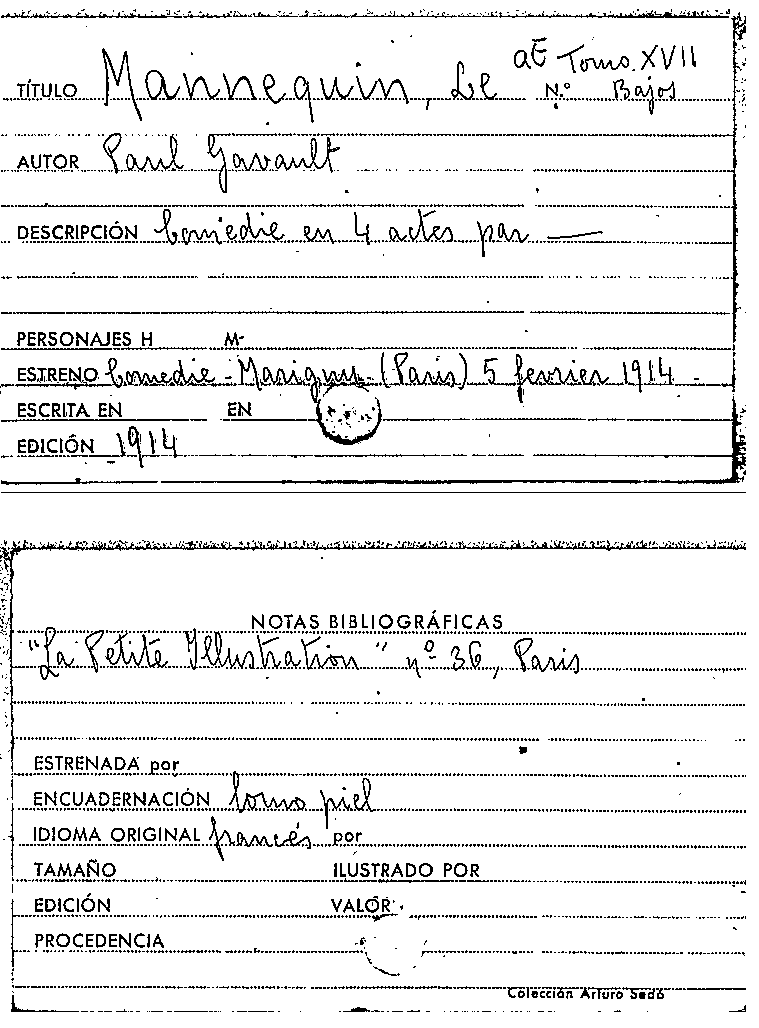 aE Tomo XVII
TÍTULO Mannequin, Le N.º Bajos
AUTOR Paul Gavault
DESCRIPCIÓN Comedie en 4 actes par —
PERSONAJES H M-
ESTRENO Comedie - Marigny - (Paris) 5 fevrier 1914 -
ESCRITA EN EN
EDICIÓN 1914
NOTAS BIBLIOGRÁFICAS
"La Petite Illustration" nº 36, Paris
ESTRENADA por
ENCUADERNACIÓN lomo piel
IDIOMA ORIGINAL francés por
TAMAÑO ILUSTRADO POR
EDICIÓN VALOR
PROCEDENCIA
Colección Arturo Sedó